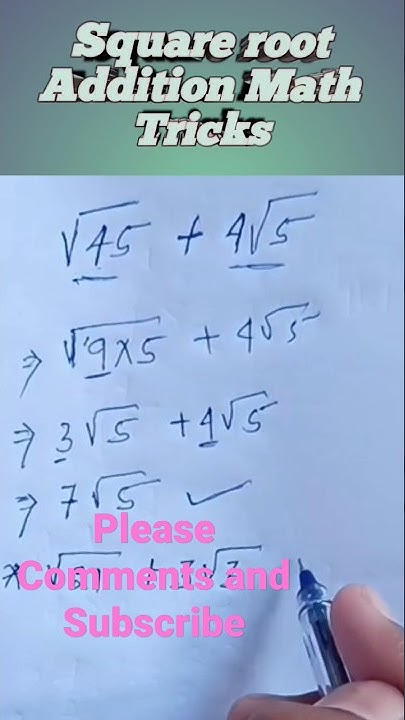 Square root
Addition Math
Tricks
√45 + 4√5
⇒ √9×5 + 4√5
⇒ 3√5 + 4√5
⇒ 7√5 ✓
Please
Comments and
Subscribe